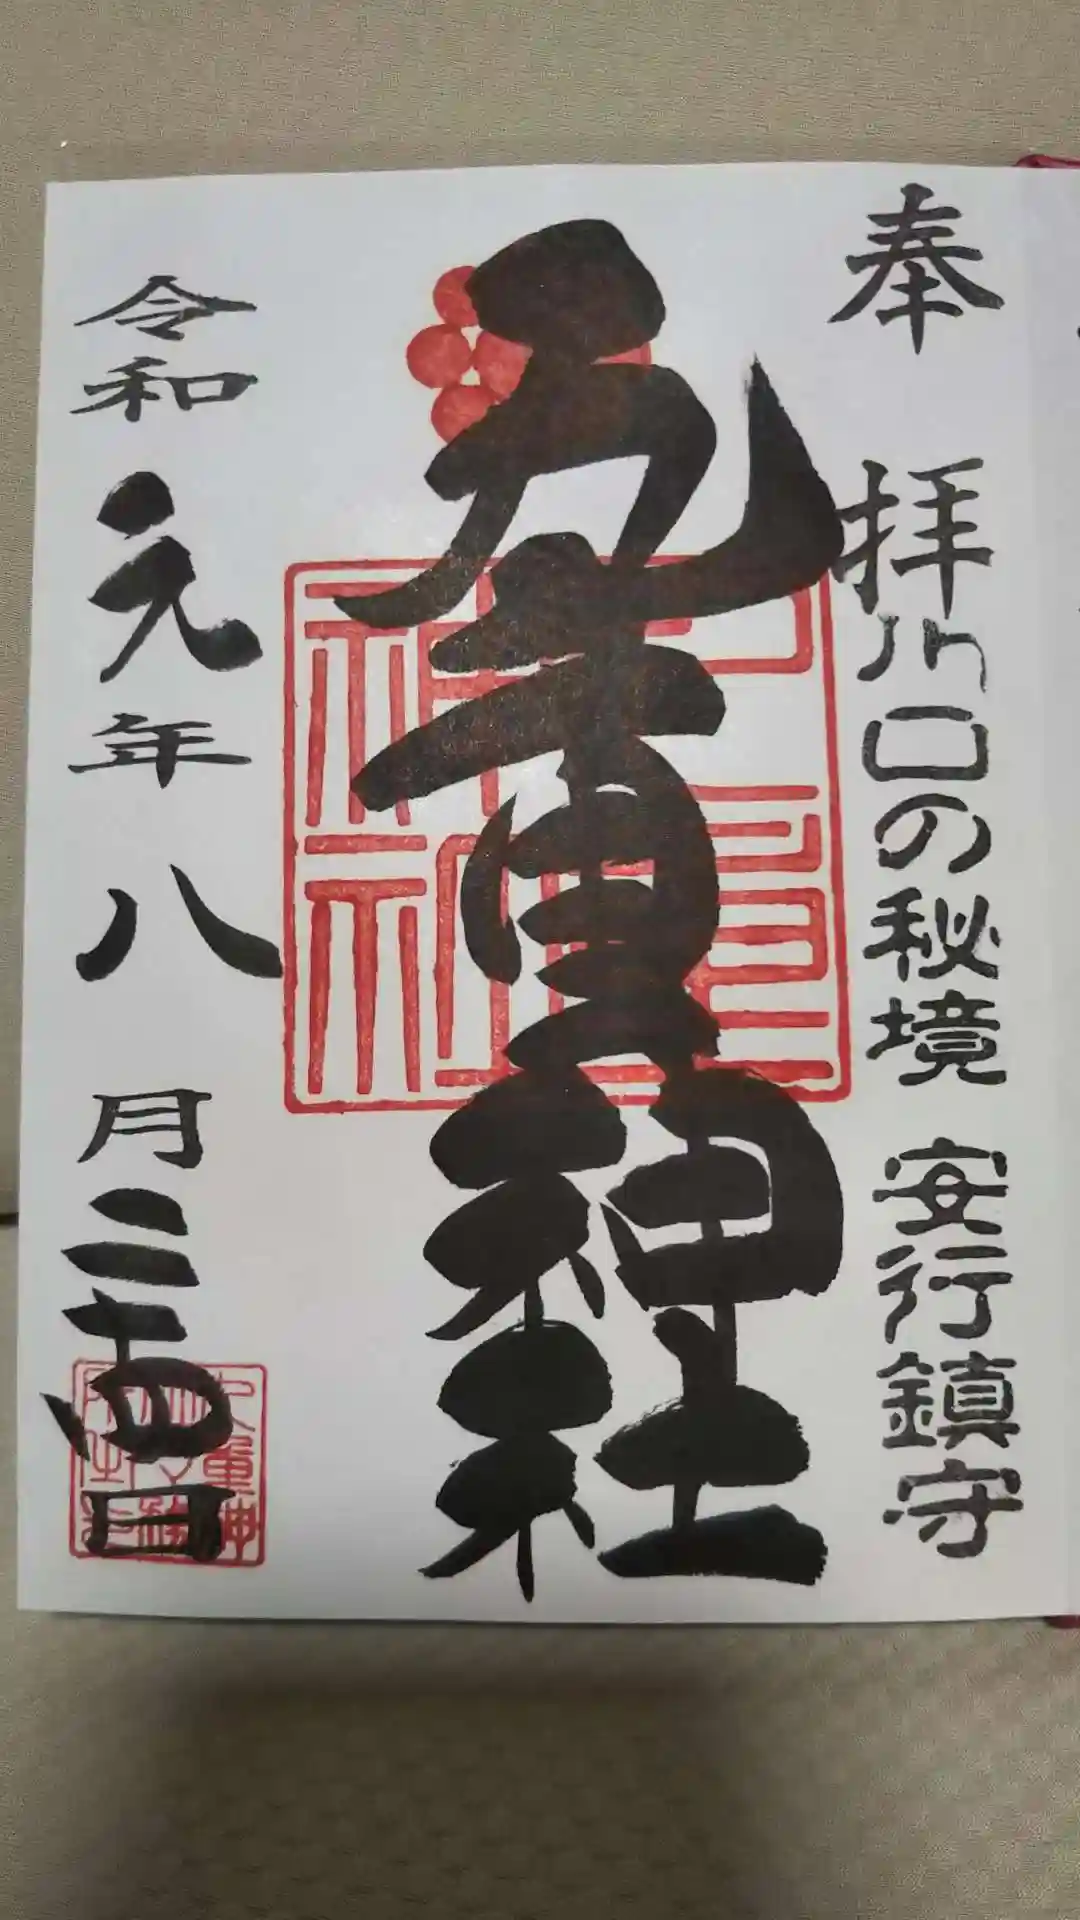 奉拝
川口の秘境 安行鎮守
九重神社
令和元年八月二十四日